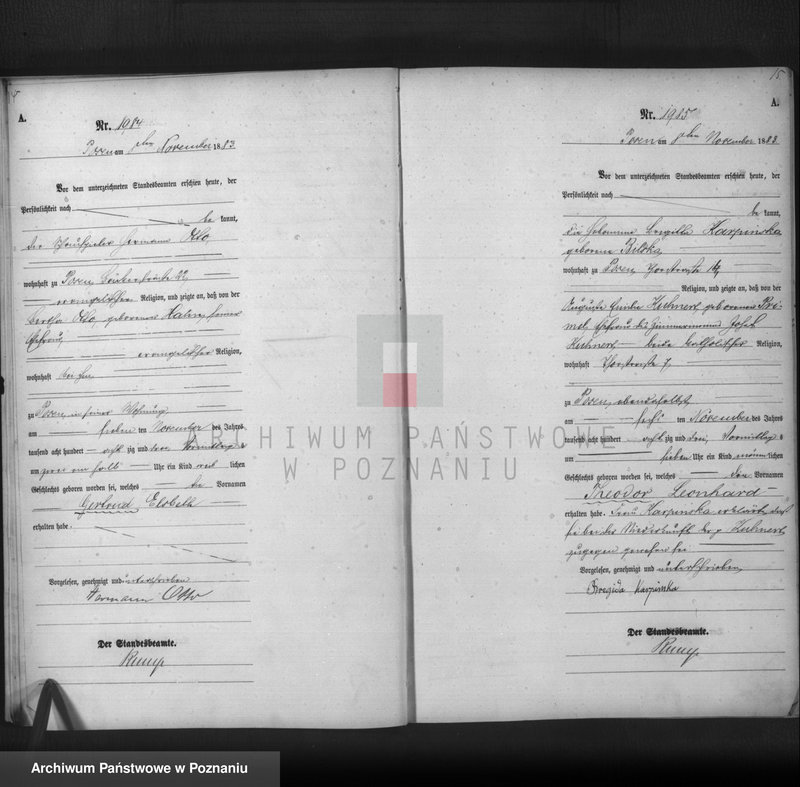 A.
Nr. 1984
Posen am November 1883
Vor dem unterzeichneten Standesbeamten erschien heute, der
Persönlichkeit nach
be kannt,
der Schauspieler Hermann Otto
wohnhaft zu Posen
evangelischer Religion, und zeigte an, daß von der
Bertha Otto geborenen Hahn, seiner
Ehefrau,
evangelischer Religion,
wohnhaft bei ihm
zu Posen in seiner Wohnung
am sieben ten November des Jahres
tausend acht hundert acht zig und drei Vormittags
um zwei ein halb Uhr ein Kind weib lichen
Geschlechts geboren worden sei, welches die Vornamen
Gertrud Elsbeth
erhalten habe
Vorgelesen, genehmigt und unterschrieben
Hermann Otto
Der Standesbeamte.
Rump
15
A.
Nr. 1985
Posen am November 1883
Vor dem unterzeichneten Standesbeamten erschien heute, der
Persönlichkeit nach
be kannt,
die Hebamme Brigitta Karpinska
geborene Bilska
wohnhaft zu Posen
Religion, und zeigte an, daß von der
Auguste Emilie Kuhnert geborenen
Ehefrau des Zimmermanns Josef
Kuhnert beide katholischer Religion,
wohnhaft 7,
zu Posen, ebendaselbst
am sechs ten November des Jahres
tausend acht hundert acht zig und drei Vormittags
um sieben Uhr ein Kind männ lichen
Geschlechts geboren worden sei, welches die Vornamen
Theodor Leonhard
erhalten habe. Frau Karpinska erklärte, daß
sie bei der Niederkunft der p. Kuhnert
zugegen gewesen sei
Vorgelesen, genehmigt und unterschrieben
Bregida Karpinska
Der Standesbeamte.
Rump
ARCHIWUM PAŃSTWOWE
W POZNANIU
Archiwum Państwowe w Poznaniu